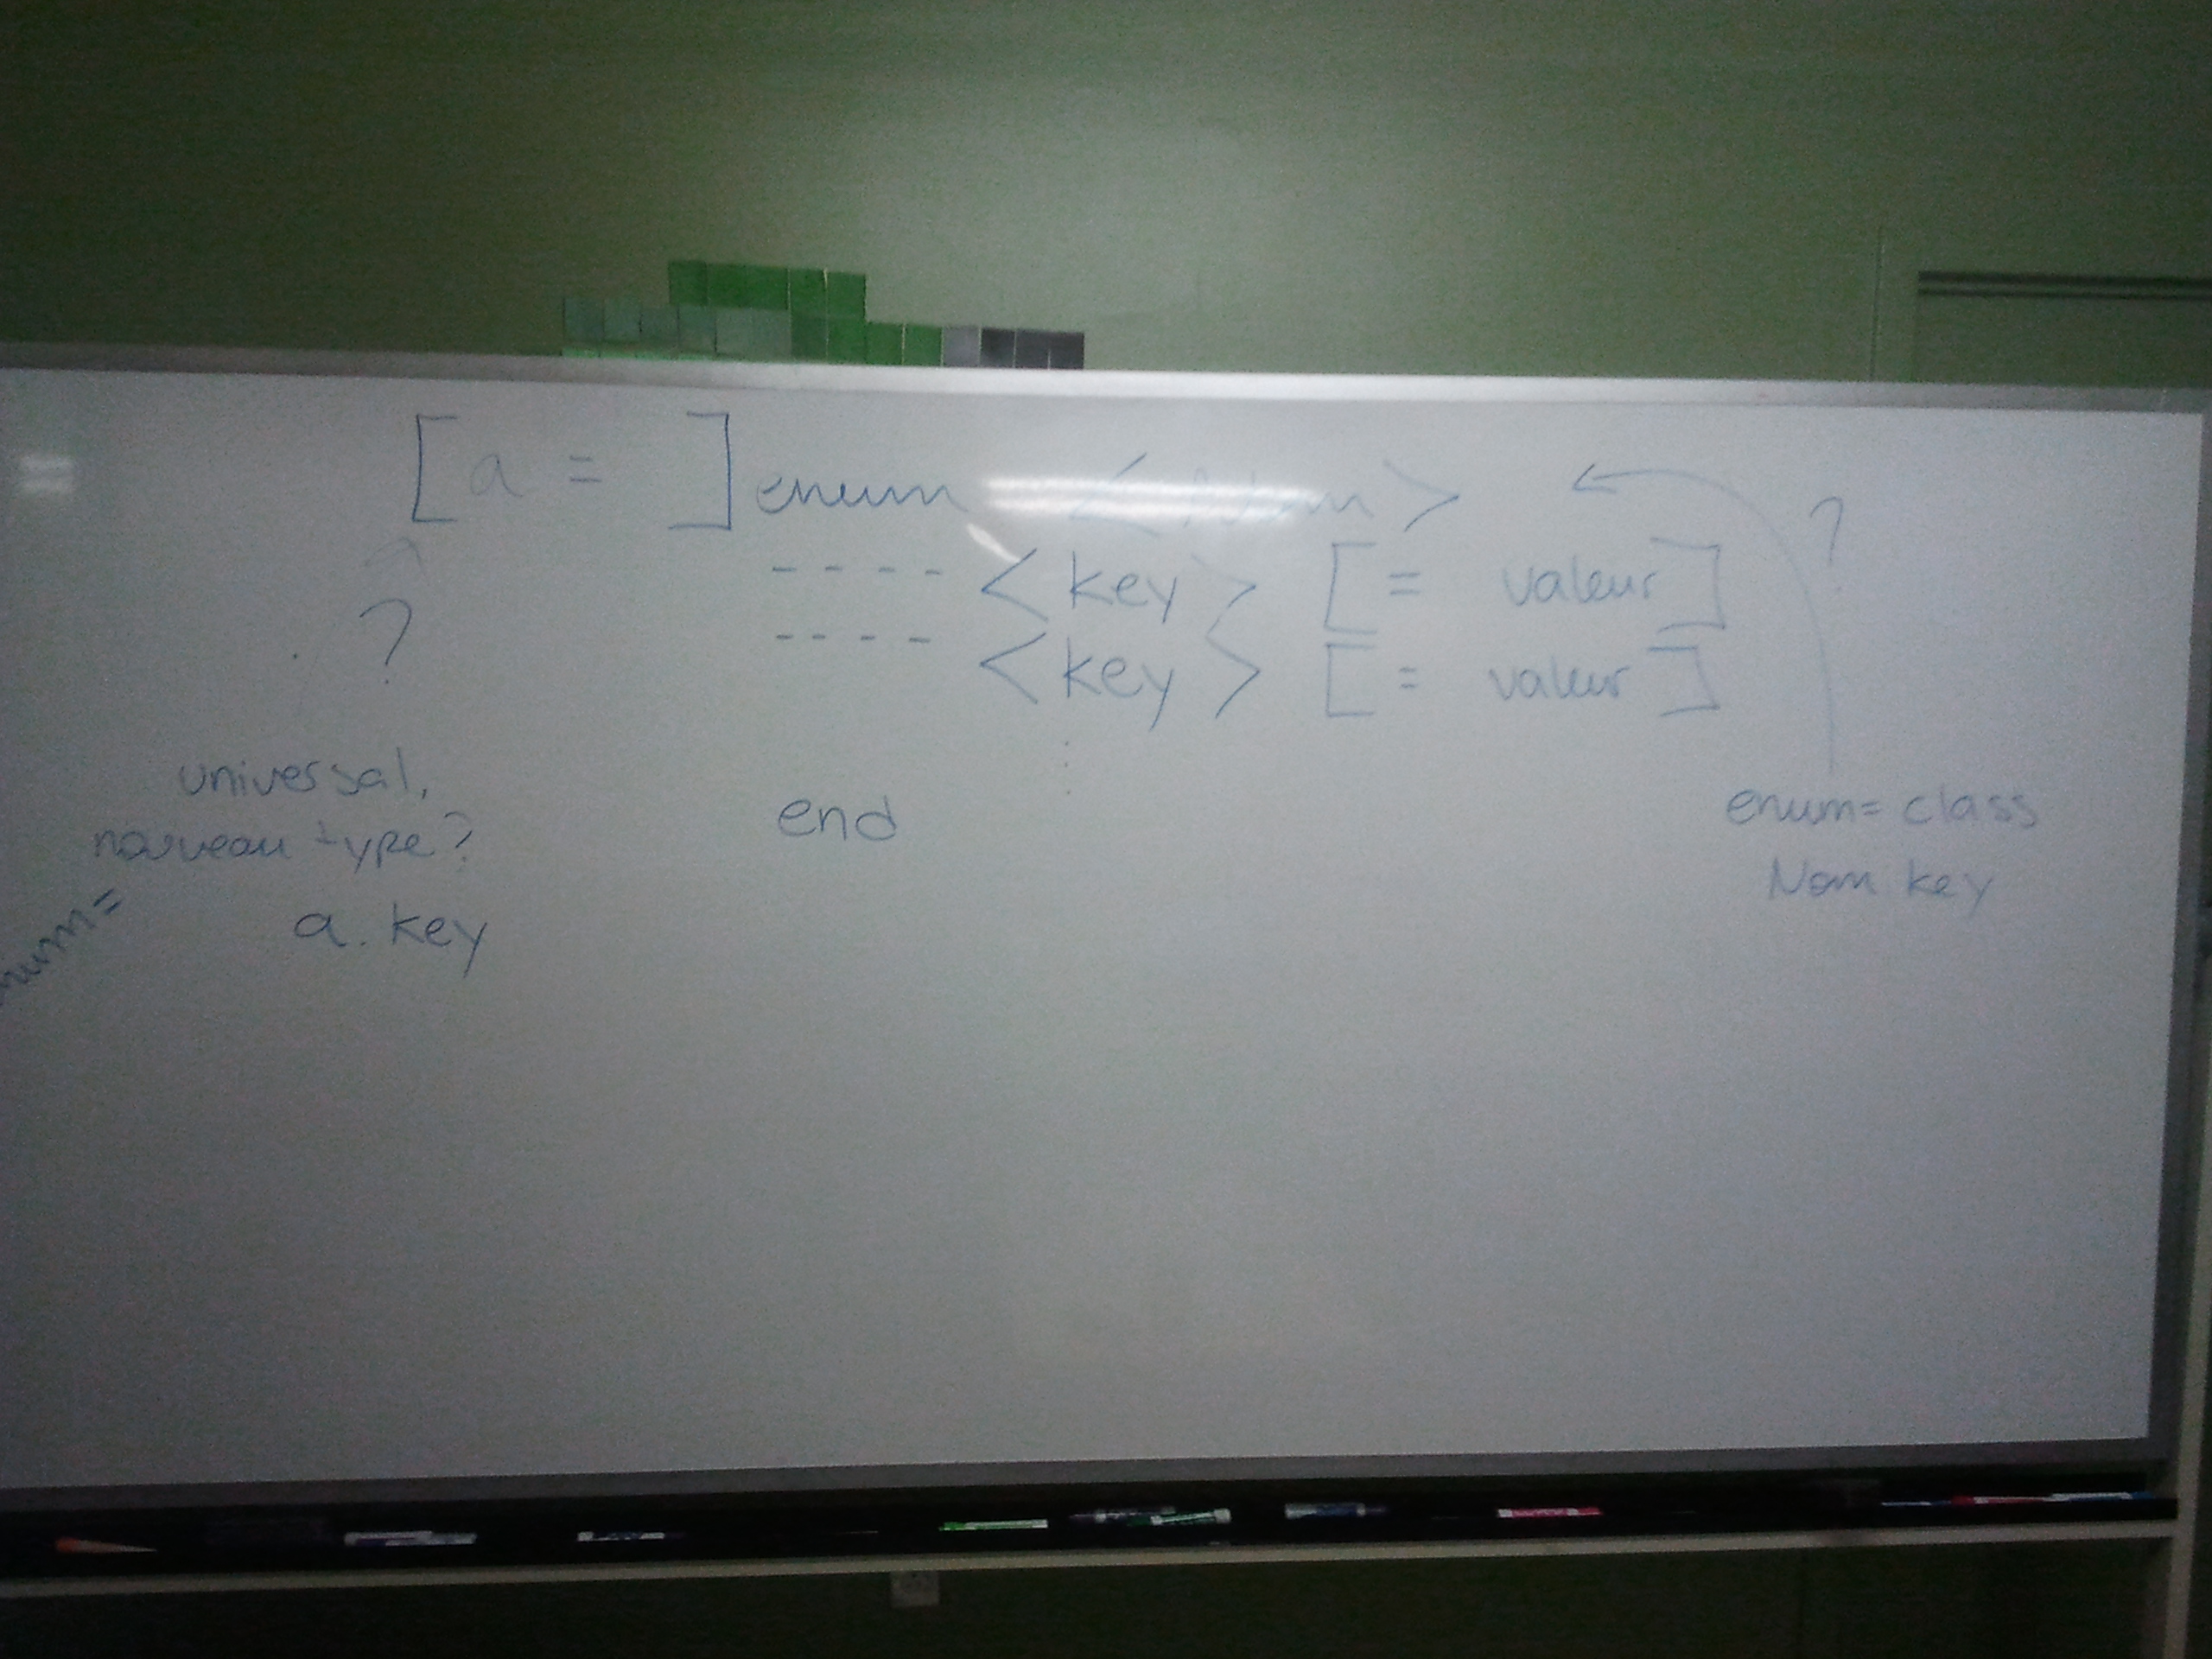 [a = ] enum <Nom>
- - - - <key> [= valeur]
- - - - <key> [= valeur]
end
?
universal,
nouveau type?
a.key
num=
?
enum= class
Nom key